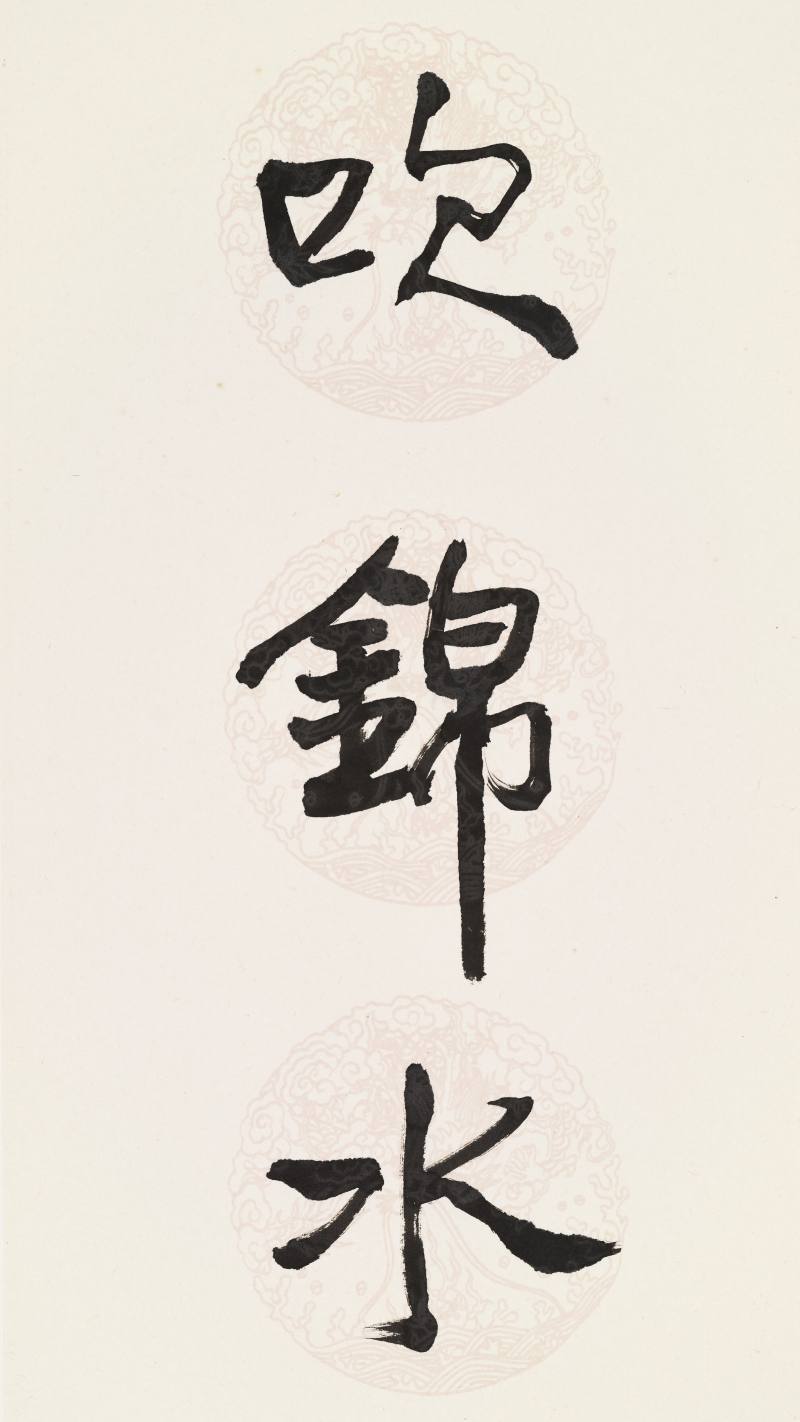 吹錦水